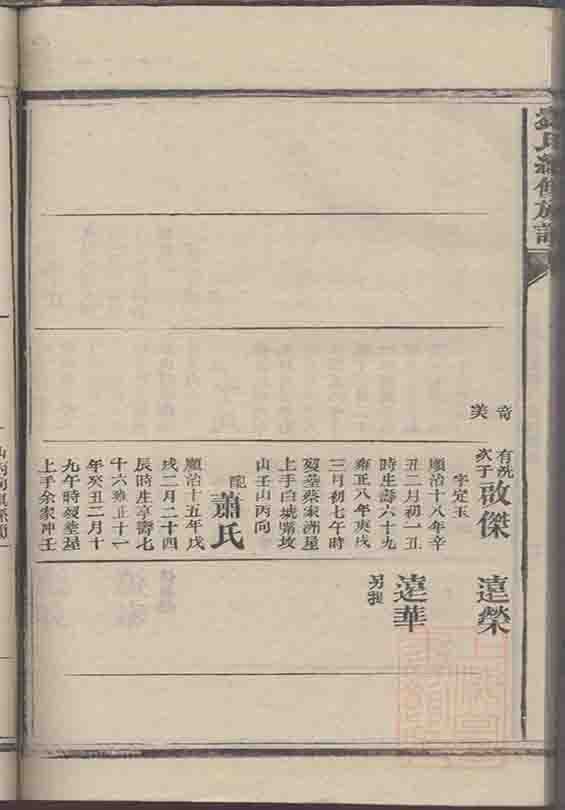 氏續修族譜
奇美
有洸
次子
啟傑
字定玉
順治十八年辛
丑二月初一丑
時生壽六十九
雍正八年庚戌
三月初七午時
歿塟蔡家洲屋
上手白城嘴坟
山壬山丙向
配
蕭氏
順治十五年戊
戌二月二十四
辰時生享壽七
十六雍正十一
年癸丑二月十
九午時歿塟屋
上手余家冲壬
遠榮
遠華
另提